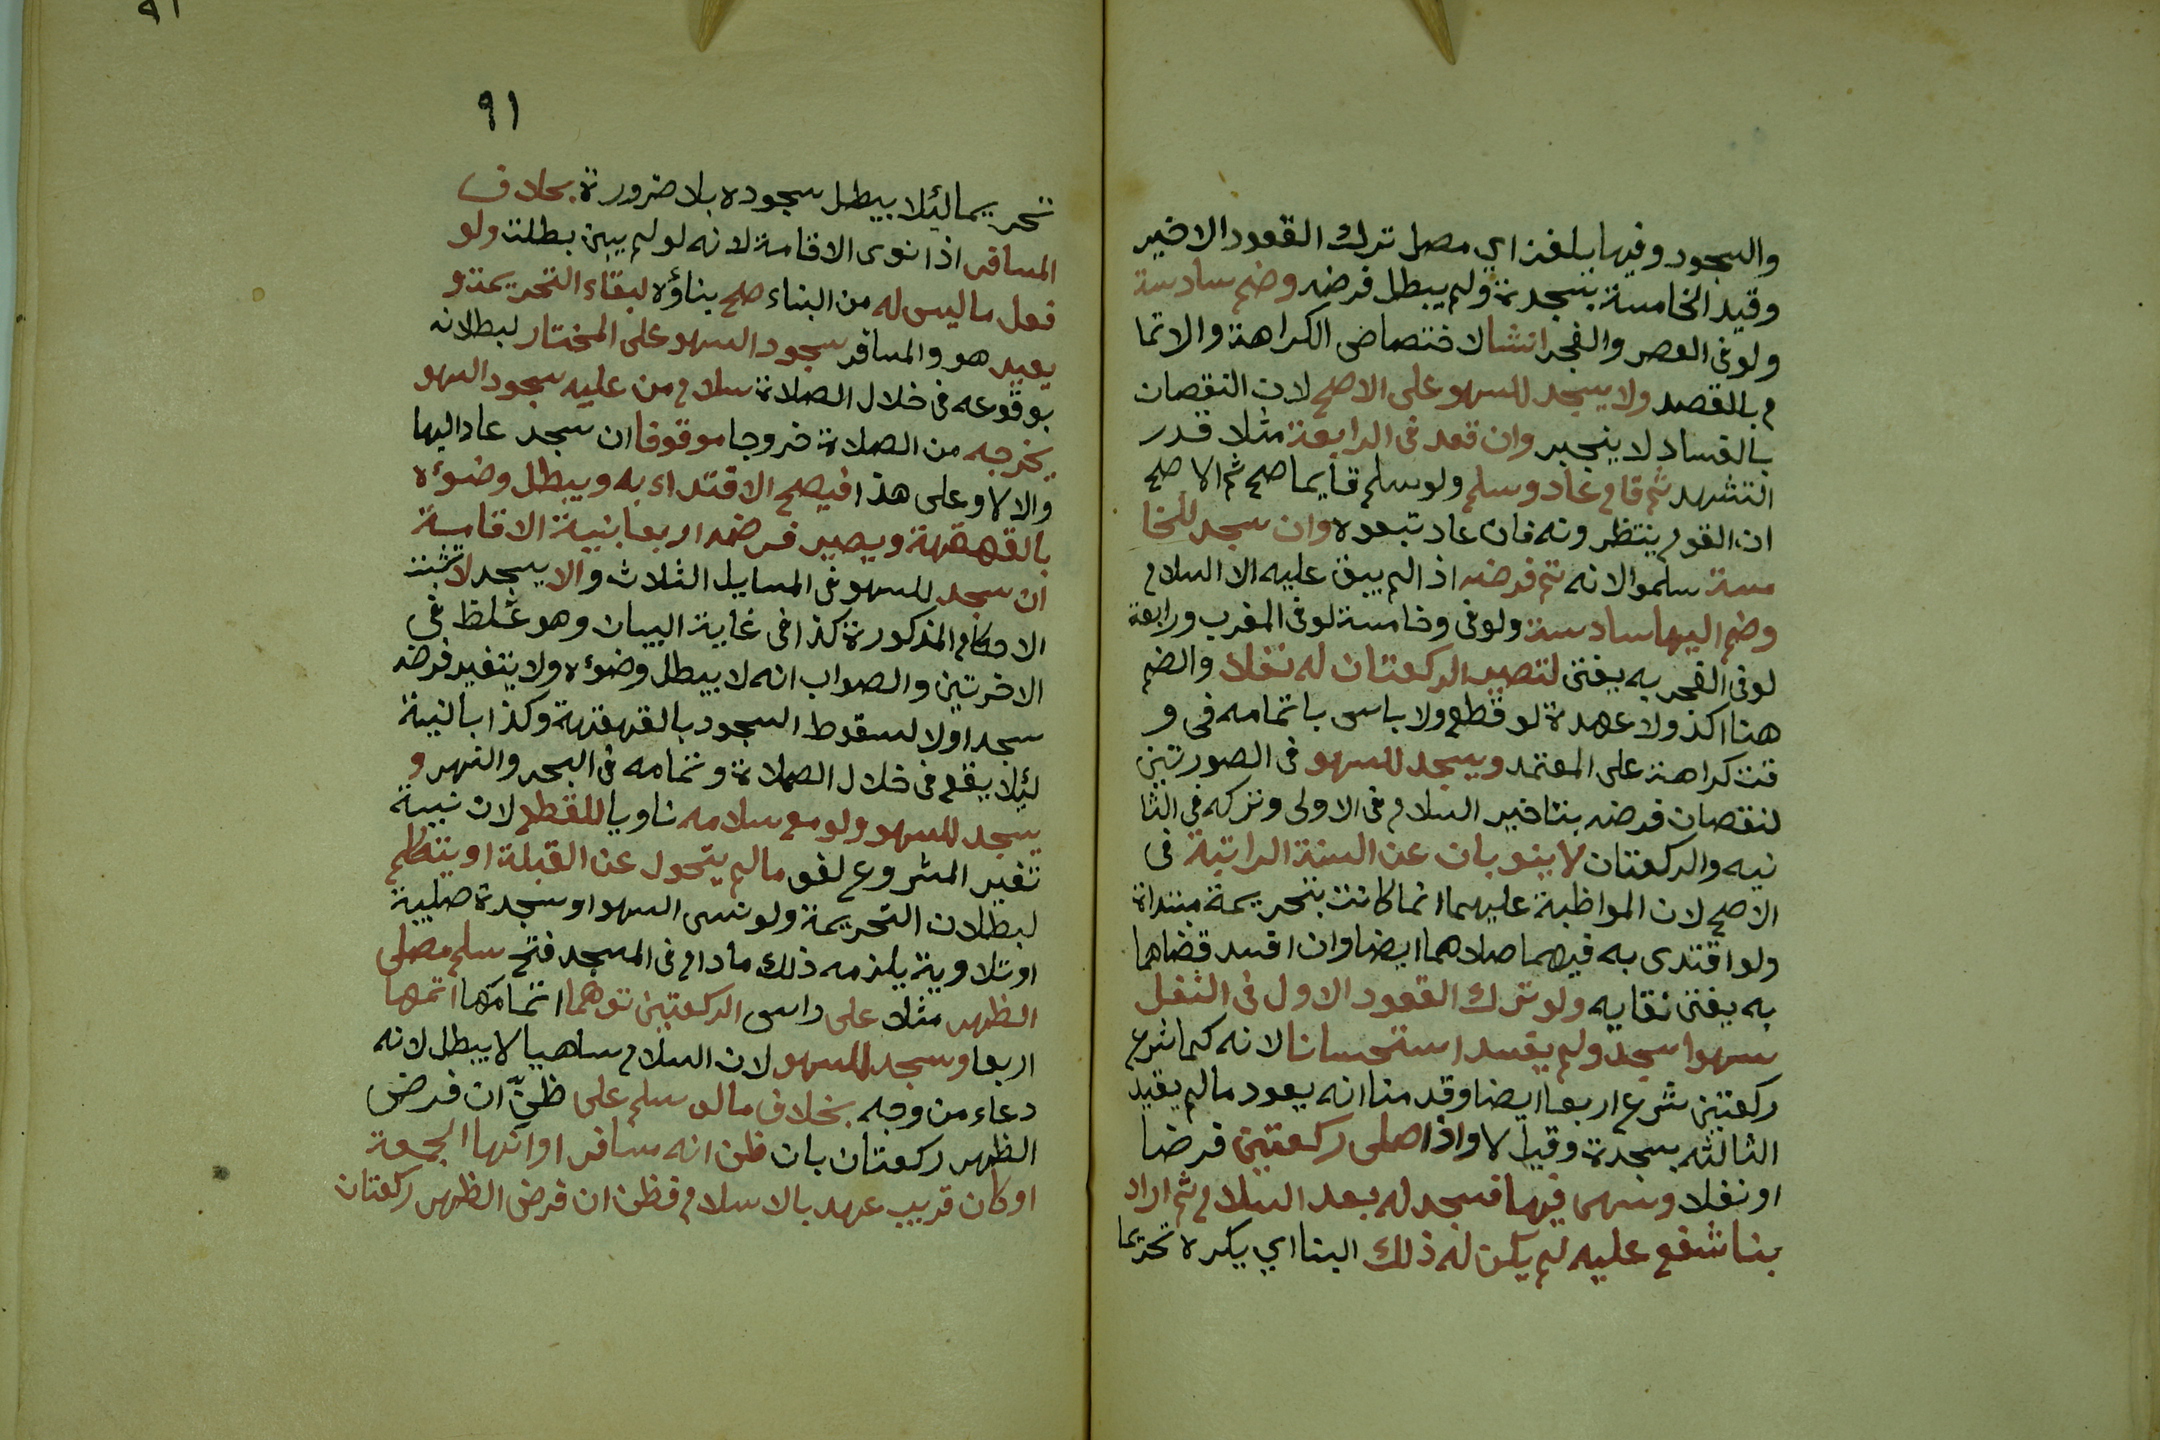 والسجود وفيها يلغز اي مصل ترك القعود الاخير
وقيد الخامسة بسجدة ولم يبطل فرضه وضم سادسة
ولو في العصر والفجر انشا لاختصاص الكراهة والاتما
م بالقصد ولا يسجد للسهو على الاصح لان النقصان
بالفساد لا ينجبر وان قعد في الرابعة مثلا قدر
التشهد ثم قام عاد وسلم ولو سلم قايما صح ثم الاصح
ان القوم ينتظرونه فان عاد تبعوه وان سجد للخا
مسة سلموا لانه تم فرضه اذ لم يبق عليه الا السلام
وضم اليها سادسة ولو في وخامسة لو في المغرب ورابعة
لو في الفجر به يفتى لتصير الركعتان له نفلا والضم
هنا اكد ولا عهدة لو قطع ولا باس باتمامه في و
قت كراهة على المعتمد ويسجد للسهو في الصورتين
لنقصان فرضه بتاخير السلام في الاولى وتركه في الثا
نيه والركعتان لا ينوبان عن السنة الراتبة في
الاصح لان المواظبة عليهما انما كانت بتحريمة مبتداة
ولو اقتدى به فيهما صلاهما ايضا وان افسد قضاهما
به يفتى نقايه ولو ترك القعود الاول في النفل
سهوا سجد ولم يفسد استحسانا لانه كما شرع
ركعتين شرع اربعا ايضا وقدمنا انه يعود ما لم يقيد
الثالثه بسجدة وقيل لا واذا صلى ركعتين فرضا
او نفلا وسهى فيها فسجد له بعد السلام ثم اراد
بنا شفع عليه لم يكن له ذلك البنا اي يكره تحريما
٩١
تحريما ليلا يبطل سجوده بلا ضرورة بخلاف
المسافر اذا نوى الاقامة لانه لو لم يبن بطلت ولو
فعل ما ليس له من البناء صح بناؤه لبقاء التحريمة و
يعيد هو والمسافر سجود السهو على المختار لبطلانه
بوقوعه في خلال الصلاة سلام من عليه سجود السهو
يخرجه من الصلاة خروجا موقوفا ان سجد عاد اليها
والا لا وعلى هذا فيصح الاقتداء به ويبطل وضوءه
بالقهقهة ويصير فرضه اربعا بنية الاقامة
ان سجد للسهو في المسايل الثلاث والا يسجد لا تثبت
الاحكام المذكورة كذا في غاية البيان وهو غلط في
الاخرتين والصواب انه لا يبطل وضوءه ولا يتغير فرضه
سجد اولا لسقوط السجود بالقهقهة وكذا بالنية
ليلا يقع في خلال الصلاة وتمامه في البحر والنهر و
يسجد للسهو ولو مع سلامه ناويا للقطع لان نية
تغير المشروع لغو ما لم يتحول عن القبلة او يتكلم
لبطلان التحريمة ولو نسى السهو او سجدة صلبية
او تلاوية يلزمه ذلك ما دام في المسجد فتح سلم مصلى
الظهر مثلا على راس الركعتين توهما اتمامها اتمها
اربعا وسجد للسهو لان السلام ساهيا لا يبطل لانه
دعاء من وجه بخلاف ما لو سلم على ظن ان فرض
الظهر ركعتان بان ظن انه مسافر او انها الجمعة
او كان قريب عهد بالاسلام فظن ان فرض الظهر ركعتان